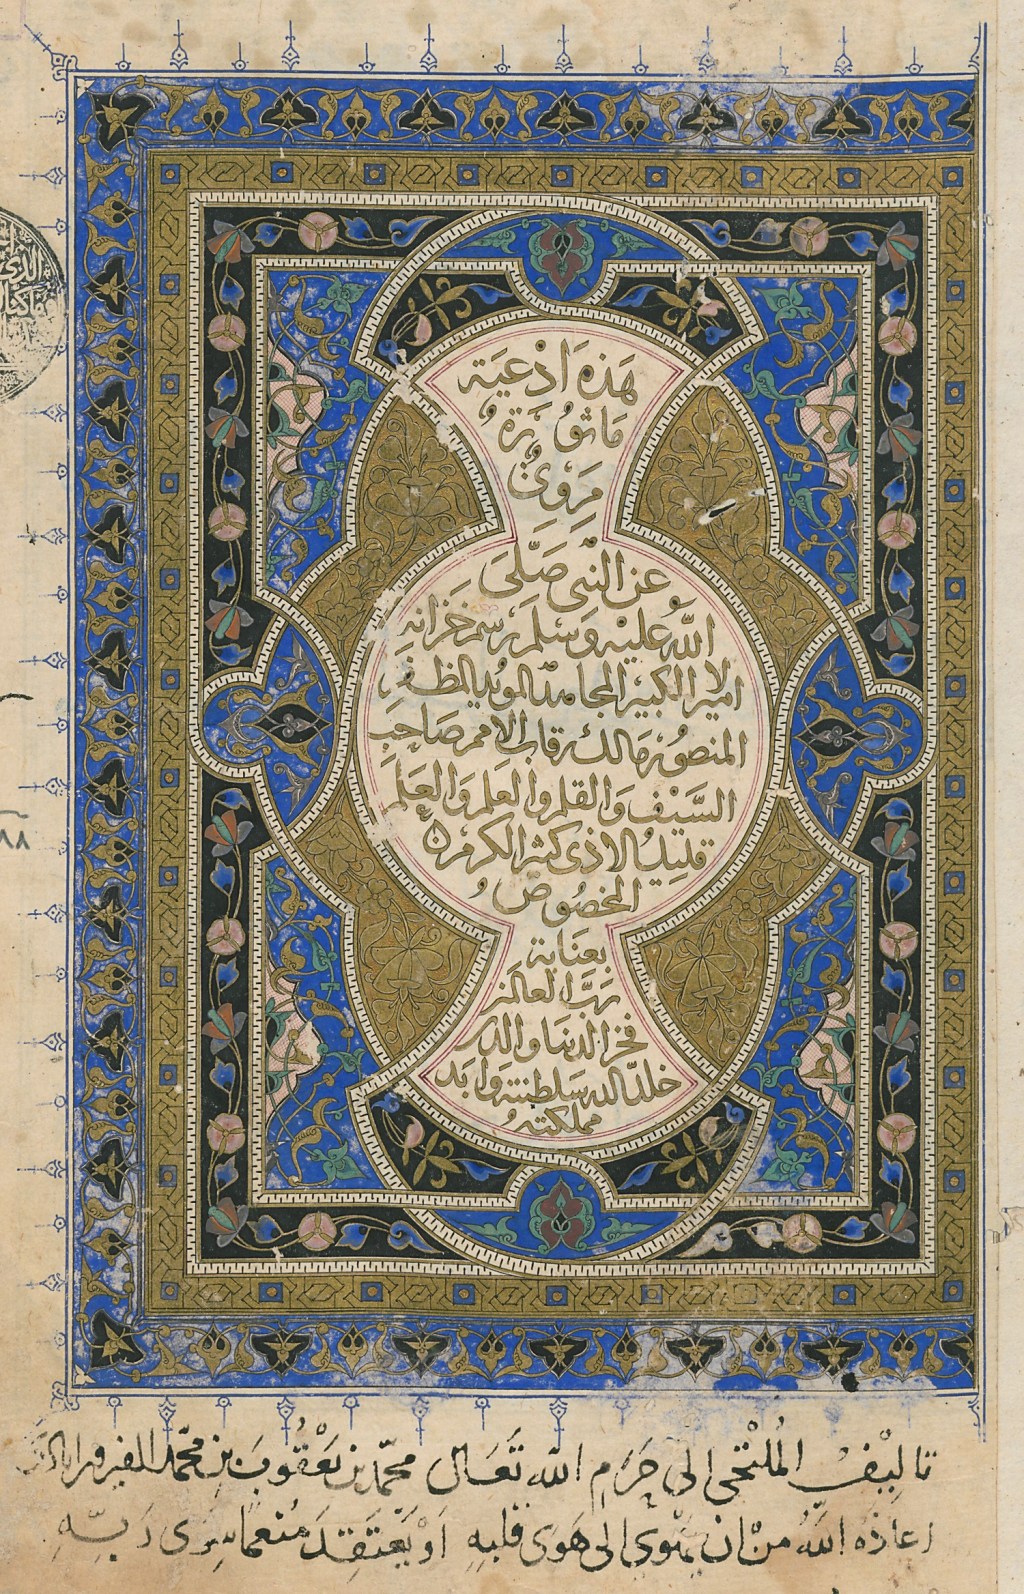 هذه ادعية
ماثورة
مروية
عن النبي صلى
الله عليه وسلم برسم خزانة
الامير الكبير المجاهد المويد المظفر
المنصور مالك رقاب الامم صاحب
السيف والقلم والعلم والعلم
قليل الاذى كثير الكرم
المخصوص
بعناية
رب العالمين
فخر الدنيا والدين
خلد الله سلطنته وابد
مملكته
تاليف الملتجئ الى حرم الله تعالى محمد بن يعقوب بن محمد الفيروزابادي
اعاذه الله من ان يلتوى الى هوى قلبه او يعتقد منعما سوى ربه